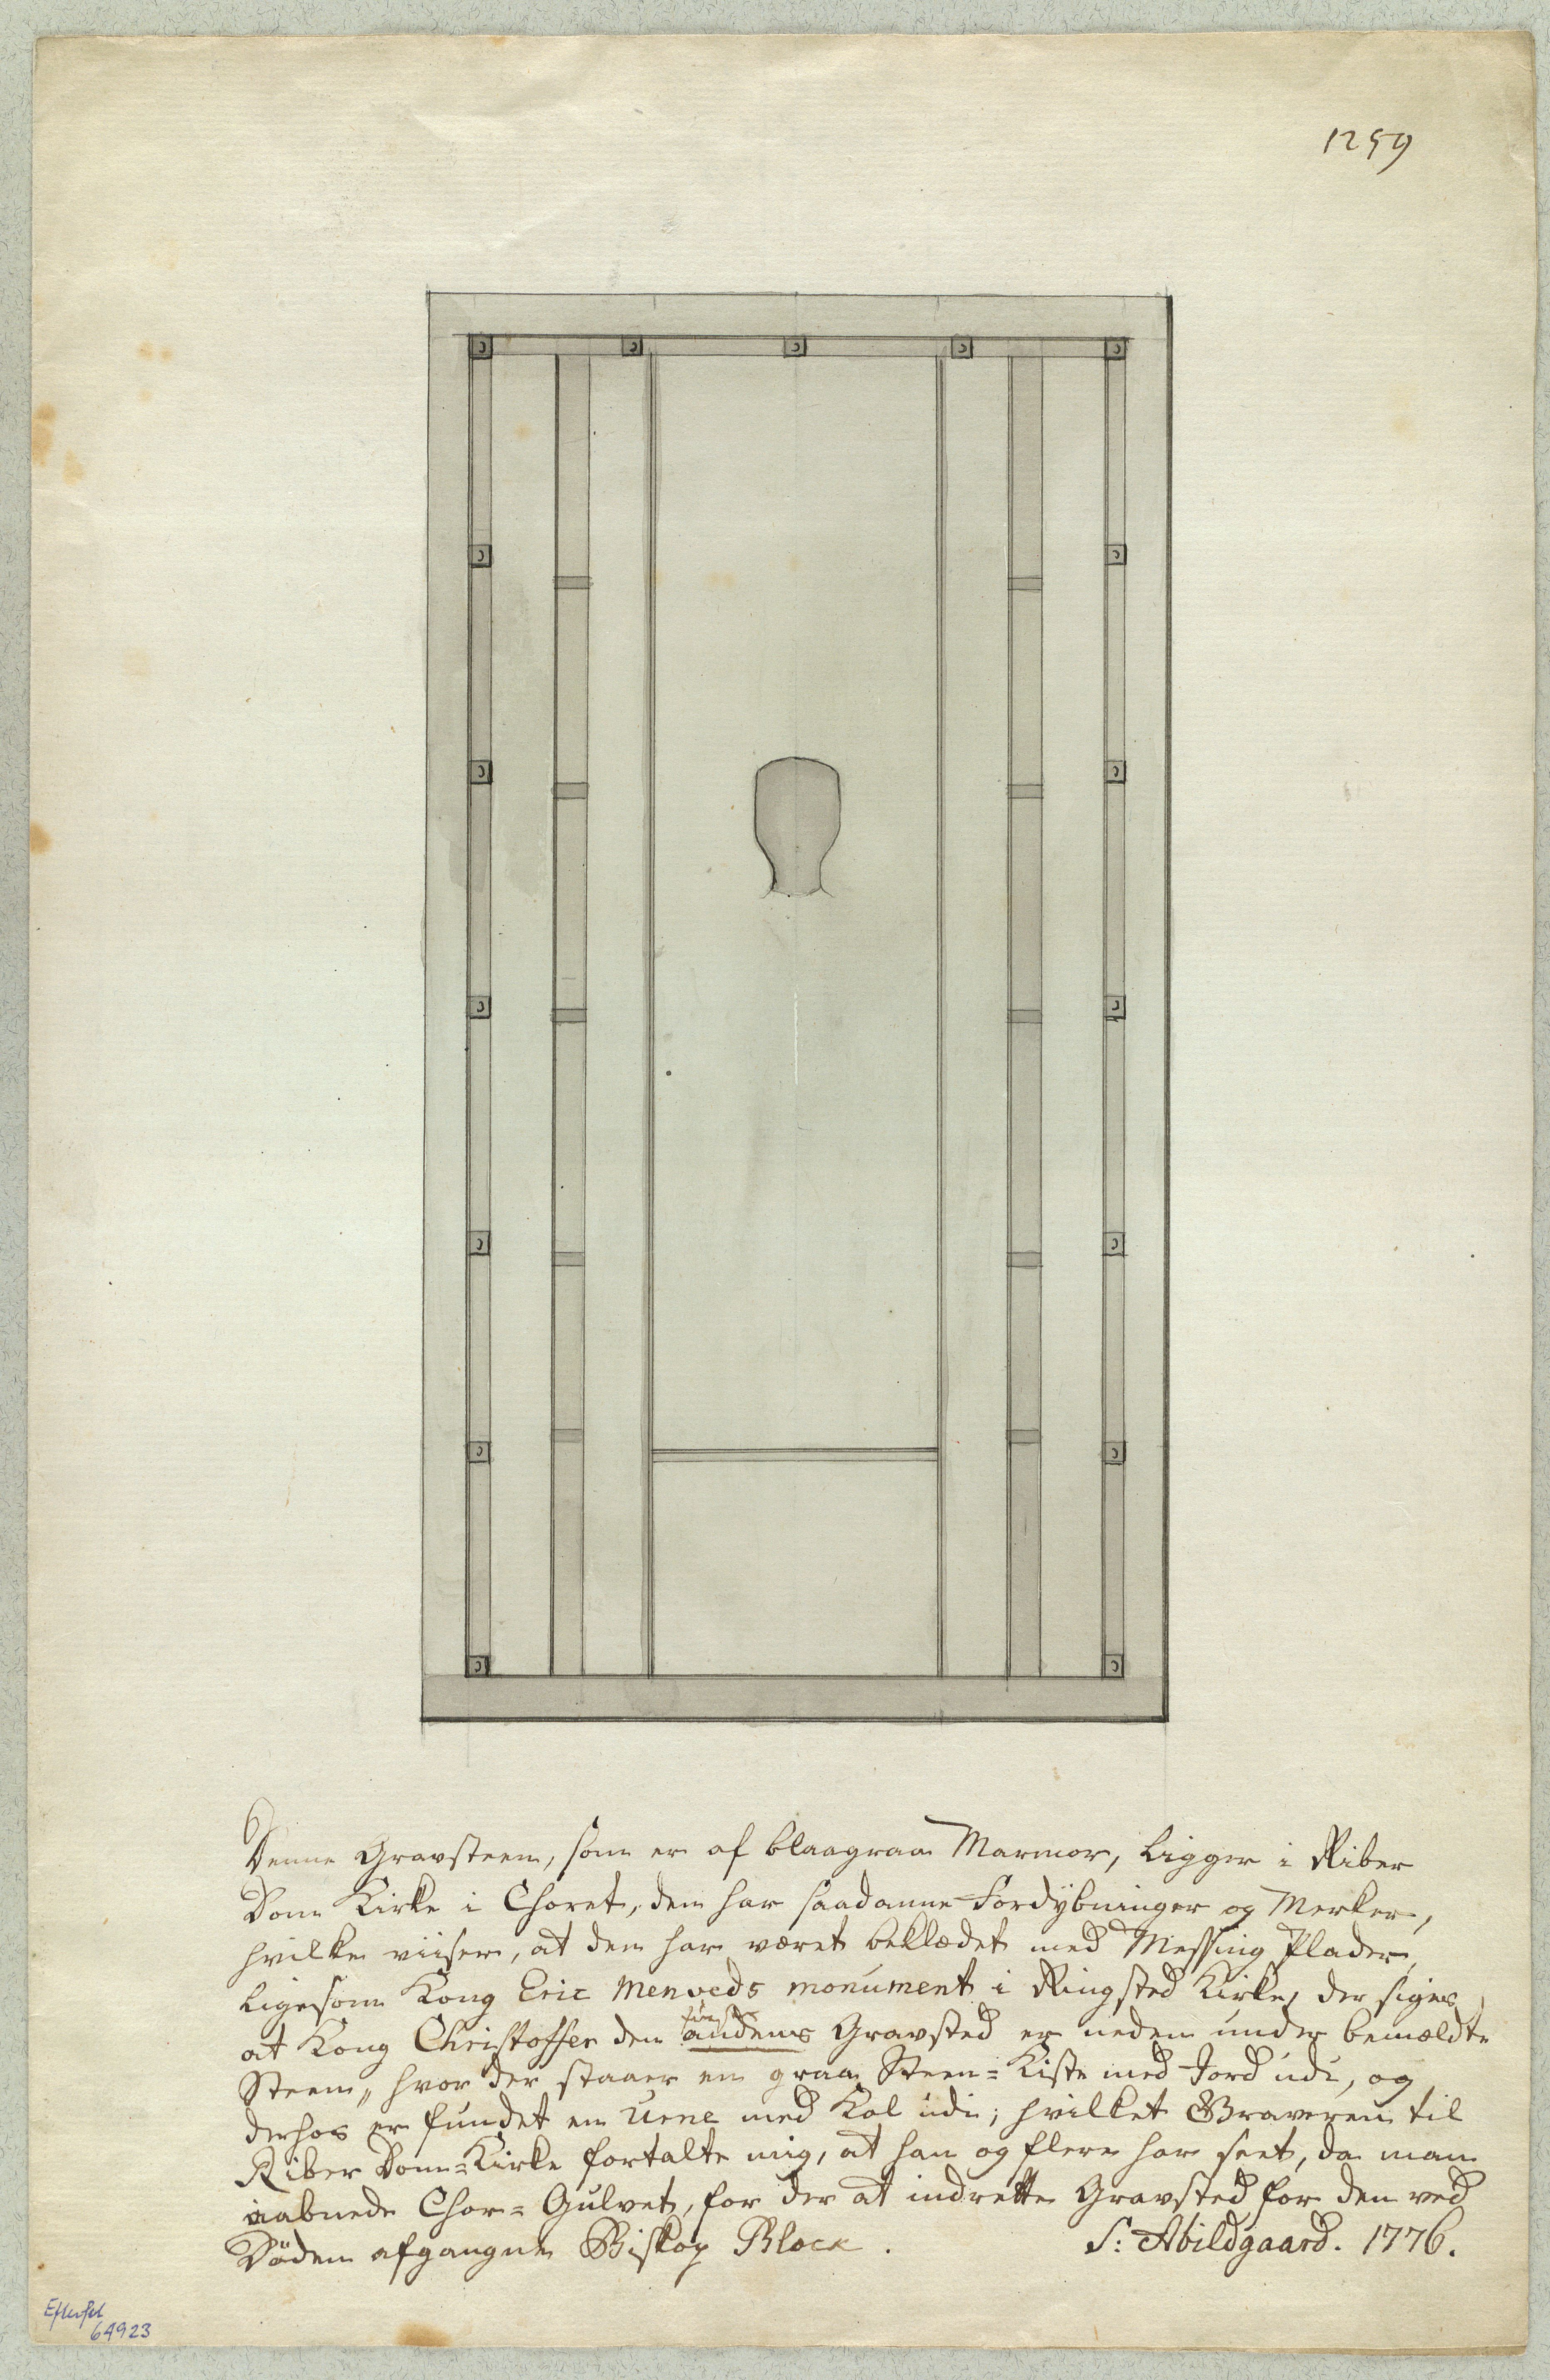 1259
Denne Gravsteen, som er af blaagraa Marmor, ligger i Riber
Dom Kirke i Choret, den har saadanne Fordÿbninger og Merker,
hvilke viiser, at den har været beklædet med Messing Plader,
ligesom Kong Eric Menveds monument i Ringsted Kirke, der siges
at Kong Christoffer den andens Gravsted er neden under bemældte
Steen, hvor der staaer en graa Steen=Kiste med Jord udi, og
derhos er fundet en Urne med Kol udi; hvilket Graveren til
Riber Dom=Kirke fortalte mig, at han og flere har seet, da man
aabnede Chor=Gulvet, for der at indrette Gravsted for den ved
Döden afgangne Biskop Block.
S: Abildgaard. 1776.
64923